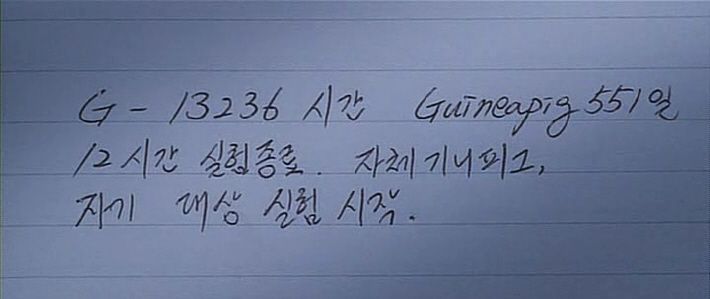 G - 13236 시간 Guineapig 551일
12시간 실험종료. 자체기니피그,
자기 대상 실험 시작.